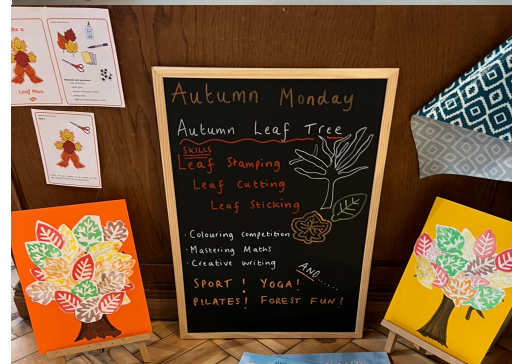 ke a
Leaf Man
Autumn Monday
Autumn Leaf Tree
SKILLS
Leaf Stamping
Leaf Cutting
Leaf Sticking
· Colouring competition
· Mastering Maths
· Creative writing
AND......
SPORT! YOGA!
PILATES! FOREST FUN!